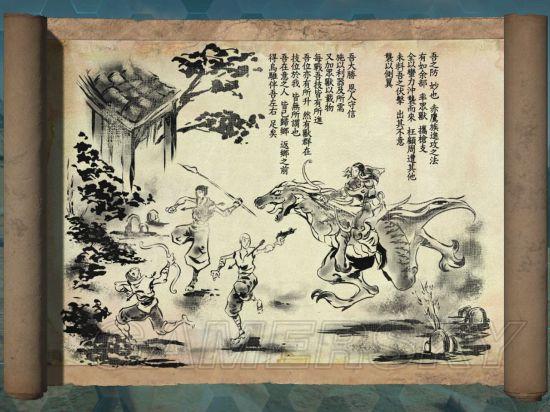 吾之防 妙也 赤鷹族進攻之法
有如余部 率眾獸 攜槍支
全以蠻力沖襲而來 枉顧周遭其他
未料吾之伏擊 出其不意
襲以側翼
吾大勝 恩人守信
施以利器及所需
又加眾獸以載物
每戰吾技皆有所進
吾位亦有所升 然有獸群在
技位於我 皆無所謂也
吾在意之人 皆已歸鄉 返鄉之前
得烏雕伴吾左右 足矣
GAMERSKY